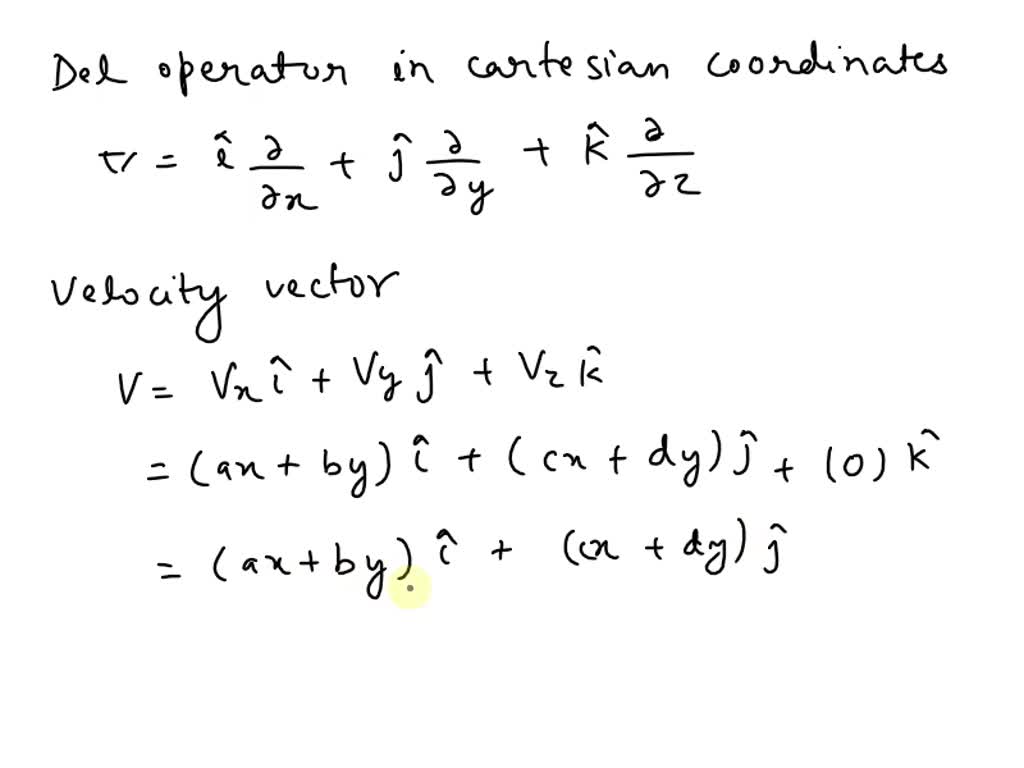 Del operator in cartesian coordinates
∇ = î ∂/∂x + ĵ ∂/∂y + k̂ ∂/∂z
Velocity vector
V = Vx î + Vy ĵ + Vz k̂
= (ax + by) î + (cx + dy) ĵ + (0) k̂
= (ax + by) î + (cx + dy) ĵ